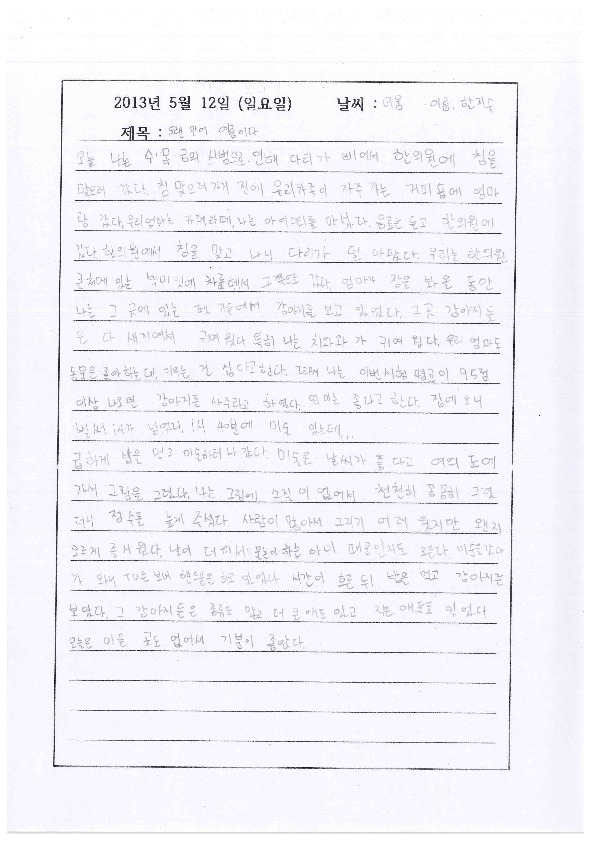 2013년 5월 12일 (일요일) 날씨 : 더움 이름: 한지수
제목 : 여름이다
오늘 나는 수·목·금의 시범으로 인해 다리가 삐어서 한의원에 침을
맞으러 갔다. 침 맞으러 가기 전에 우리가족이 자주 가는 커피숍에 엄마
랑 갔다. 우리엄마는 카페라떼, 나는 아이스티를 마셨다. 음료는 들고 한의원에
갔다. 한의원에서 침을 맞고 나니 다리가 덜 아팠다. 우리는 한의원
근처에 있는 차를타서 그곳으로 갔다. 엄마가 장을 봐 온 동안
나는 그 곳에 있는 강아지를 보고 있었다. 그곳 강아지들
은 다 새끼여서 귀여웠다 특히 나는 치와와가 귀여웠다. 우리 엄마도
동물은 좋아하는데, 키우는 건 싫다고한다. 그래서 나는 이번시험 평균이 95점
이상 나오면 강아지를 사주라고 하였다. 엄마는 좋다고 한다. 집에 오니
벌써 1시가 넘었다. 1시 40분에 미술 있는데...
급하게 밥을 먹고 미술하러 나갔다. 미술은 날씨가 좋다고 여의도에
가서 그림을 그렸다. 나는 그림에 소질이 없어서 천천히 꼼꼼히 그렸
더니 점수를 높게 주셨다. 사람이 많아서 그리기 어려웠지만 왠지
모르게 즐거웠다. 날이 더워서 물놀이하는 아이 때문인지도 모른다. 미술은갔다
가 와서 TU를 보며 핸드폰을 하고 있었다 시간이 흐른 뒤 밥을 먹고 강아지를
보았다. 그 강아지들은 종류도 많고 더 큰애도 있고 작은 애들도 있었다
오늘은 미운 곳도 없어서 기분이 좋았다.